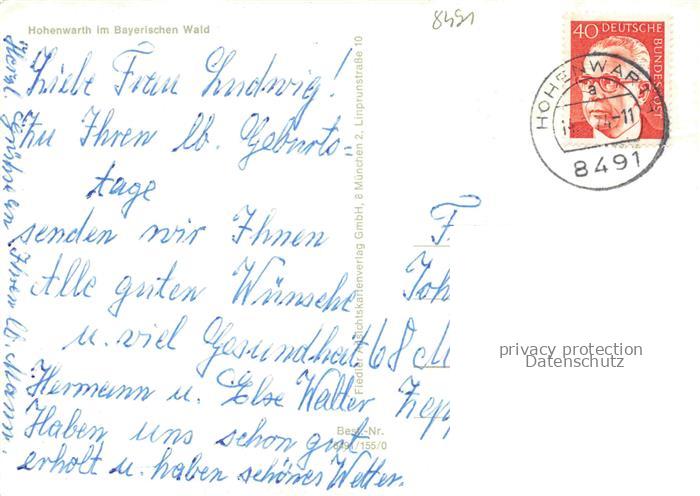 8491
Hohenwarth im Bayerischen Wald
Liebe Frau Ludwig!
Zu Ihren lb. Geburts=
tage
senden wir Ihnen
Alle guten Wünsche
u. viel Gesundheit
Hermann u. Else Walter
Haben uns schon gut
erholt u. haben schönes Wetter.
Herzl. Grüße an Ihren lb. Mann.
Fiedler Ansichtskartenverlag GmbH, 8 München 2, Linprunstraße 10
Best.-Nr.
8491/155/0
40 DEUTSCHE BUNDESPOST
HOHENWARTH
a
-11
8491
F
Joh
68 M
Zepp
privacy protection
Datenschutz